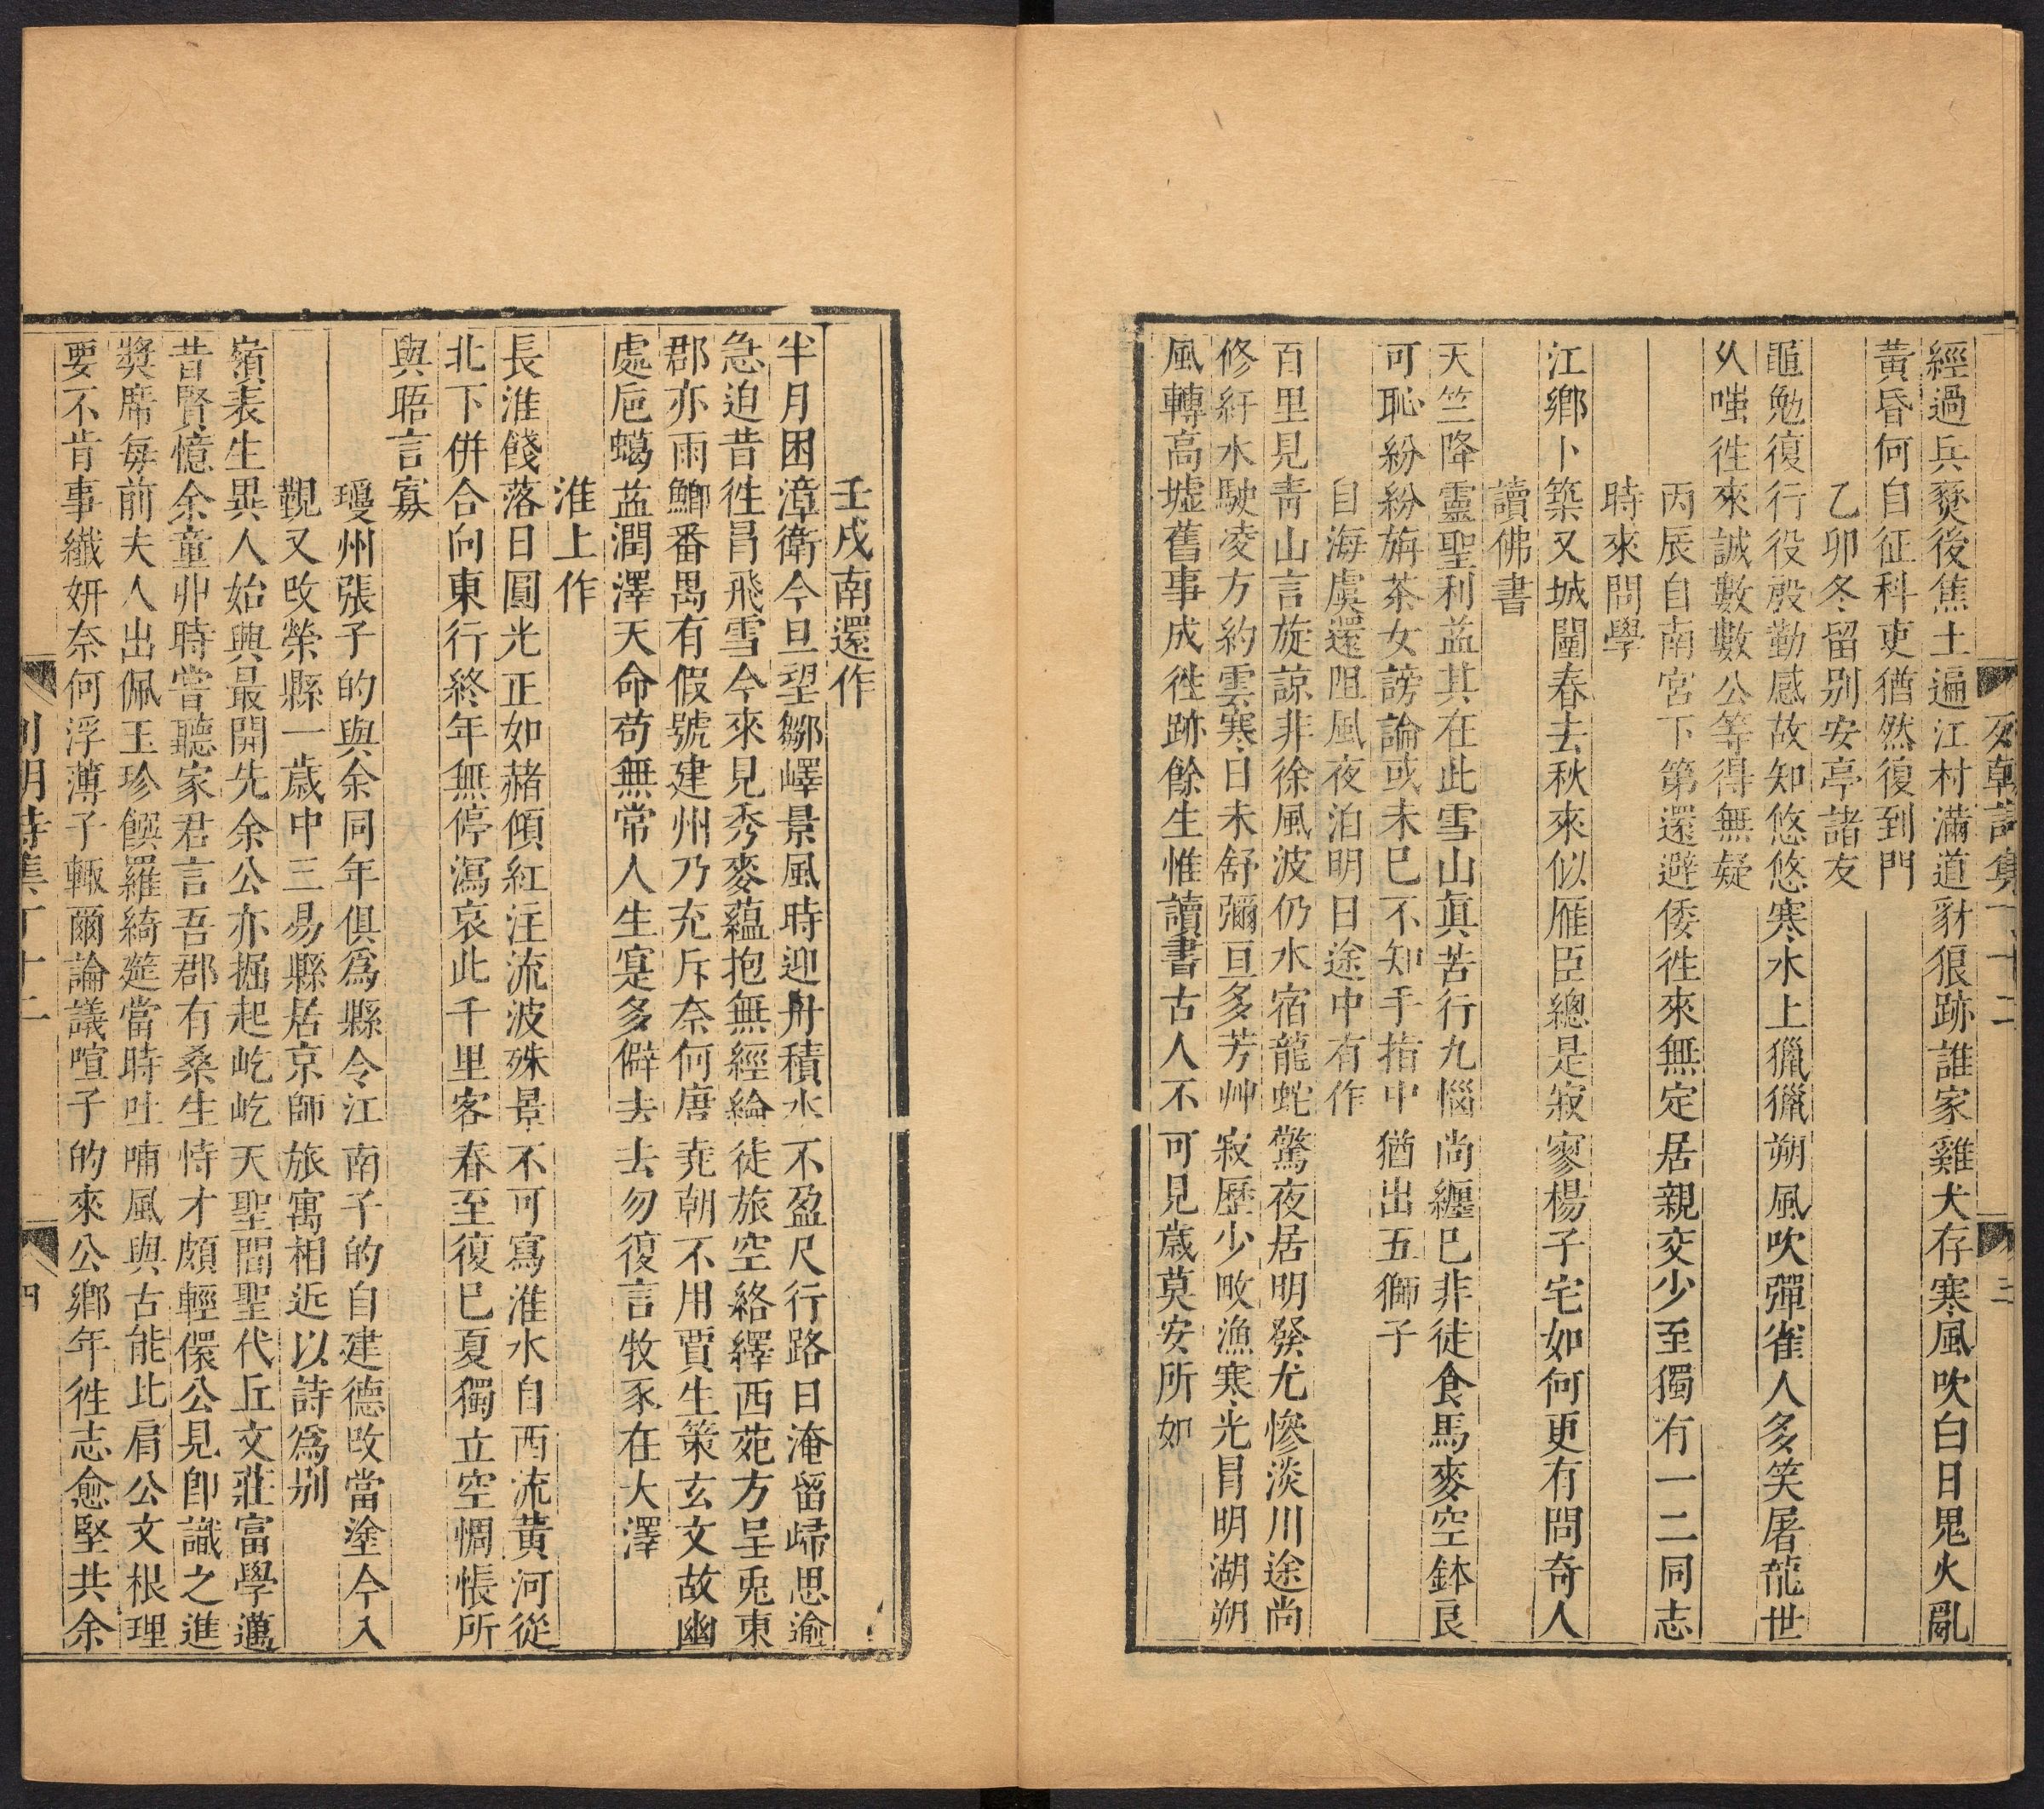 列朝詩集丁十二
三
經過兵燹後焦土遍江村滿道豺狼跡誰家雞犬存寒風吹白日鬼火亂
黃昏何自征科吏猶然復到門
乙卯冬留别安亭諸友
黽勉復行役殷勤感故知悠悠寒水上獵獵朔風吹彈雀人多笑屠龍世
久嗤徃來誠數數公等得無疑
丙辰自南宮下第還避倭徃來無定居親交少至獨有一二同志
時來問學
江鄉卜築又城闉春去秋來似雁臣總是寂寥楊子宅如何更有問奇人
讀佛書
天竺降靈聖利益其在此雪山眞苦行九惱尚纏已非徒食馬麥空鉢良
可恥紛紛旃荼女謗論或未已不知手指中猶出五獅子
自海虞還阻風夜泊明日途中有作
百里見靑山言旋諒非徐風波仍水宿龍蛇驚夜居明發尤慘淡川途尚
修紆水駛凌方約雲寒日未舒彌亘多芳艸寂歷少畋漁寒光冒明湖朔
風轉高墟舊事成徃跡餘生惟讀書古人不可見歳莫安所如
壬戌南還作
半月困漳衛今旦望鄒嶧景風時迎舟積水不盈尺行路日淹留歸思逾
急迫昔徃冐飛雪今來見秀麥蘊抱無經綸徒旅空絡繹西苑方呈兎東
郡亦雨鰤番禺有假號建州乃充斥奈何唐堯朝不用賈生策玄文故幽
處巵蠍益潤澤天命苟無常人生寔多僻去去勿復言牧豕在大澤
淮上作
長淮餞落日圓光正如赭傾紅注流波殊景不可寫淮水自西流黄河從
北下併合向東行終年無停瀉哀此千里客春至復巳夏獨立空惆悵所
與晤言寡
瓊州張子的與余同年俱爲縣令江南子的自建德改當塗今入
覲又改榮縣一歳中三易縣居京師旅寓相近以詩爲別
嶺表生異人始興最開先余公亦掘起屹屹天聖間聖代丘文莊富學邁
昔賢憶余童丱時嘗聽家君言吾郡有桑生恃才頗輕儇公見卽識之進
奬席每前夫人出佩玉珍饌羅綺筵當時吐喃風與古能比肩公文根理
要不肯事纖姸奈何浮薄子輒爾論議喧子的來公鄉年徃志愈堅共余
列朝詩集丁十二
四